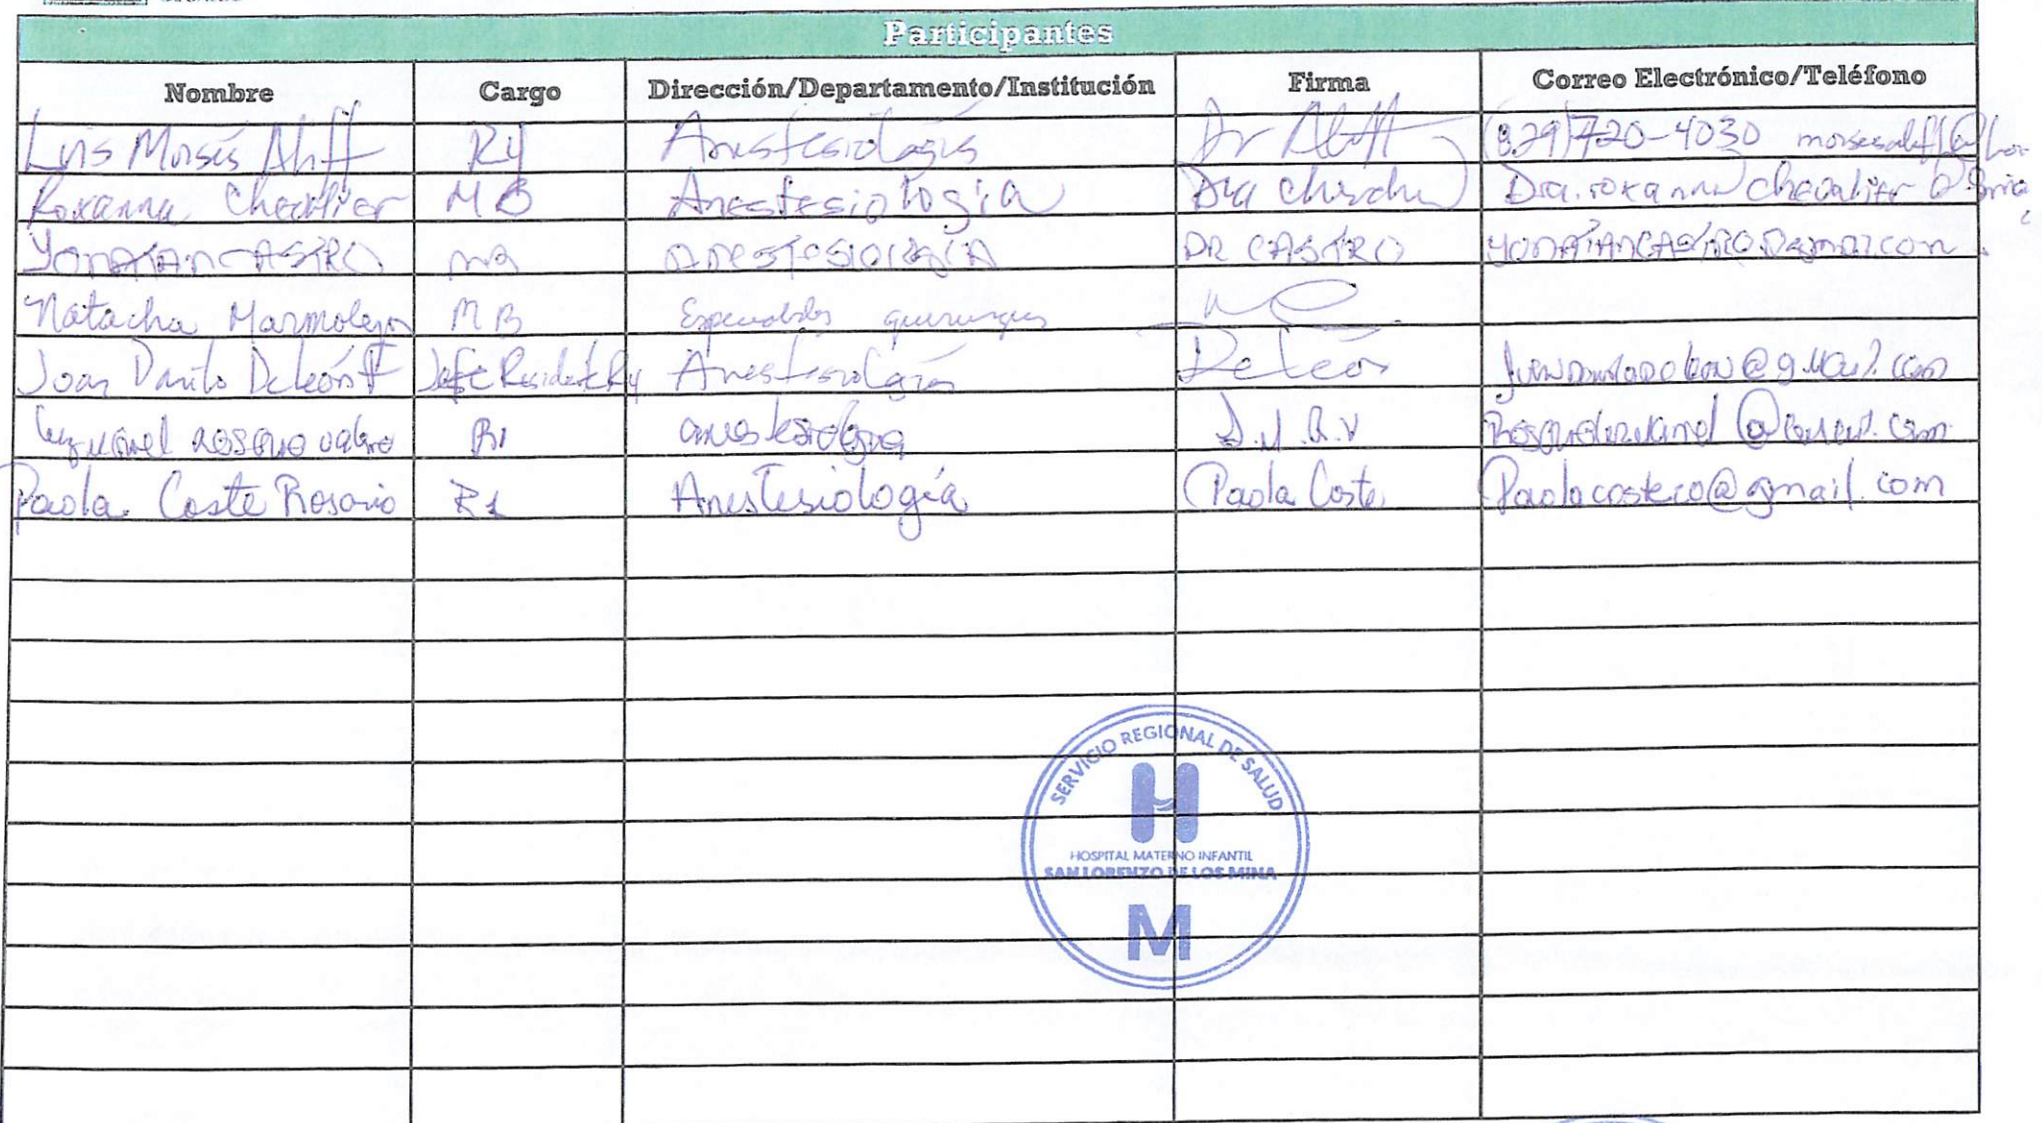 Participantes
Nombre Cargo Dirección/Departamento/Institución Firma Correo Electrónico/Teléfono
Luis Moisés Aliff R4 Anestesiología Dr Aliff (829)720-4030
Roxanna Chevalier MB Anestesiologia Dra Dra.roxanna chevalier @
YONATAN CASTRO MB Anestesiologia DR CASTRO
Natacha Marmolejos MB
Joan Danilo Deleón Jefe Residente R4 Anestesiología De León @gmail.com
R1 anestesiologia
Paola Coste Rosario R1 Anestesiología Paola Coste Paolacostero@gmail.com
SERVICIO REGIONAL DE SALUD
H
HOSPITAL MATERNO INFANTIL
SAN LORENZO DE LOS MINA
M